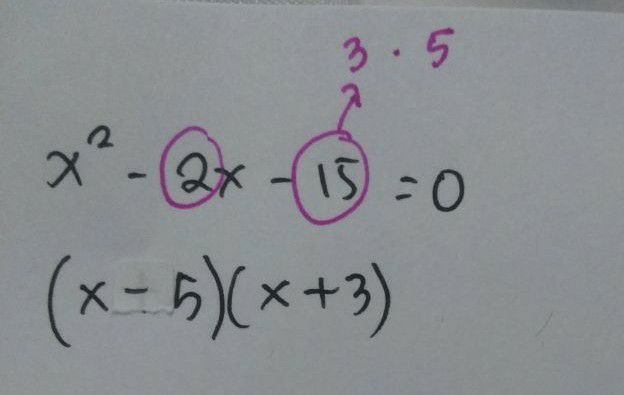 3 · 5
x² - 2x - 15 = 0
(x - 5)(x + 3)